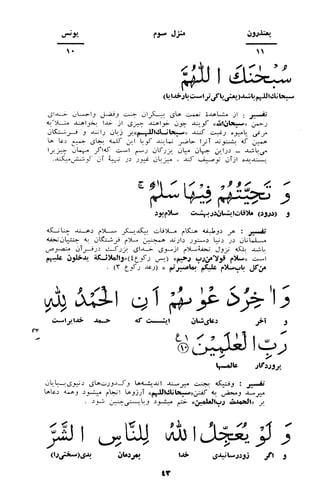 يعتذرون منزل سوم يونس
۱۱ ۱۰
سُبْحٰنَكَ اللّٰهُمَّ
سبحانك اللهم باشد (يعنی پاکی تراست بارخدایا)
تفسير : از مشاهدهٔ نعمت های بیکران جنت وفضل واحسان خدای
رحمن «سبحان‌الله» گویند چون خواهند چیزی از خدا بخواهند مثلاً به
مرغی یامیوه رغبت کنند «سبحانك‌اللهم» بر زبان رانند و فرشتگان
همین که بشنوند آنرا حاضر نمایند گویا این کلمه بجای جمیع دعا ها
می‌باشد - در این جهان میان بزرگان رسم است که‌اگر مهمان چیزیرا
پسندیده ازان توصیف کند ، میزبان غیور در تهیهٔ آن کوشش‌میکند.
وَ تَحِيَّتُهُمْ فِيْهَا سَلٰمٌ ۚ
و (درود) ملاقات ایشان دربهشت سلام‌بود
تفسير : هر دوطبقه هنگام ملاقات بیکدیگر سلام دهند چنانکه
مسلمانان در دنیا دستور دارند همچنین سلام فرشتگان به جنتیان‌تحفه
باشد بلکه نزول تحفهٔ‌سلام ازسوی خدای بزرگست درقرآن منصوص
است «سلام قولا من رب رحيم» (یس رکوع٤) «والملائكة يدخلون عليهم
من كل باب سلام عليكم بماصبرتم» (رعد رکوع ۳) .
وَ اٰخِرُ دَعْوٰىهُمْ اَنِ الْحَمْدُ لِلّٰهِ
و آخر دعای‌شان اینست که حمد خدایراست
رَبِّ الْعٰلَمِيْنَ ﴿۱۰﴾
پروردگار عالمها
تفسير : وقتیکه بجنت میرسند اندیشه‌ها وکدورت‌های دنیوی‌بپایان
میرسد ومحض به گفتن «سبحانك‌اللهم» آرزوها انجام میشود وهمه دعاها
بر «الحمدلله رب‌العلمین» ختم میشود وبایستی‌چنین شود .
وَ لَوْ يُعَجِّلُ اللّٰهُ لِلنَّاسِ الشَّرَّ
و اگر زودرسانیدی خدا بمردمان بدی(سختی‌را)
٤٣